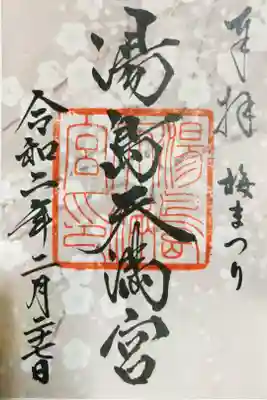 奉拝
梅まつり
湯島天満宮
湯島天満宮印
令和二年二月二十七日